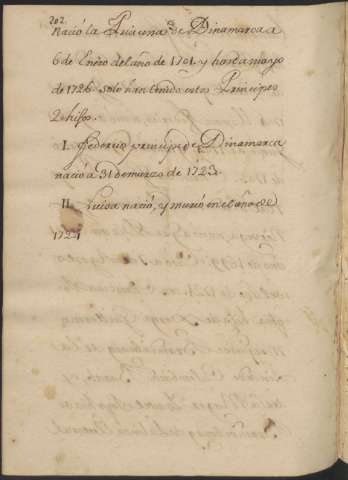 202.
Nació la Princesa de Dinamarca a
6 de Enero del año de 1701. y hasta mayo
de 1726. solo han tenido estos Principes
2 hijos.
I. Federico principe de Dinamarca
nació a 31 de marzo de 1723.
II. Luisa nació, y murió en el año de
1724